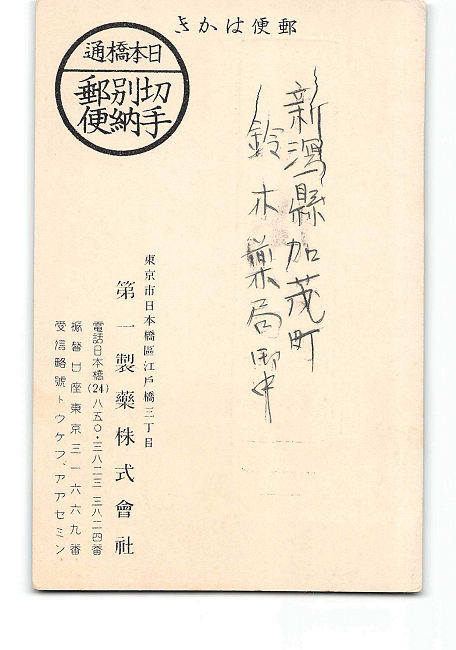 郵便はがき
日本橋通
切手別納郵便
新潟縣加茂町
鈴木薬局御中
東京市日本橋區江戶橋三丁目
第一製藥株式會社
電話日本橋(24)八五〇・三八二三 三八二四番
振替口座東京三一六六九番
受信略號トウケフ、アアセミン